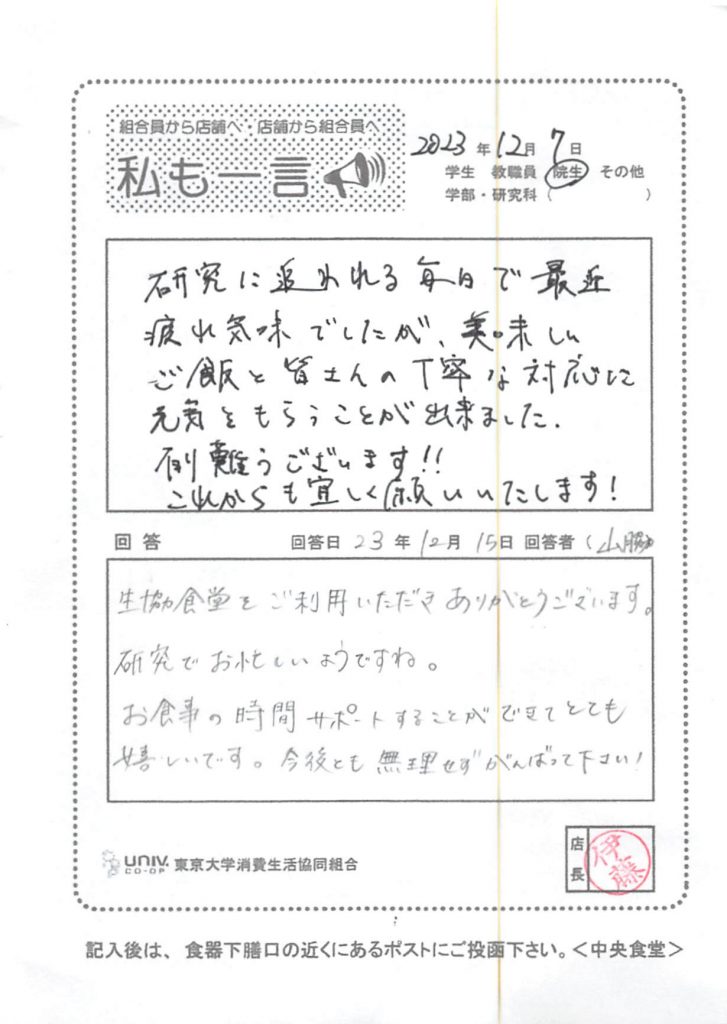 組合員から店舗へ・店舗から組合員へ
私も一言
2023年12月7日
学生 教職員 院生 その他
学部・研究科( )
研究に追われる毎日で最近
疲れ気味でしたが、美味しい
ご飯と皆さんの丁寧な対応に
元気をもらうことが出来ました.
有難うございます!!
これからも宜しく願いいたします!
回答 回答日 23年12月15日 回答者(山脇
生協食堂をご利用いただきありがとうございます。
研究でお忙しいようですね。
お食事の時間サポートすることができてとても
嬉しいです。今後とも無理せずがんばって下さい!
UNIV. CO-OP 東京大学消費生活協同組合
店長 伊藤
記入後は、食器下膳口の近くにあるポストにご投函下さい。<中央食堂>